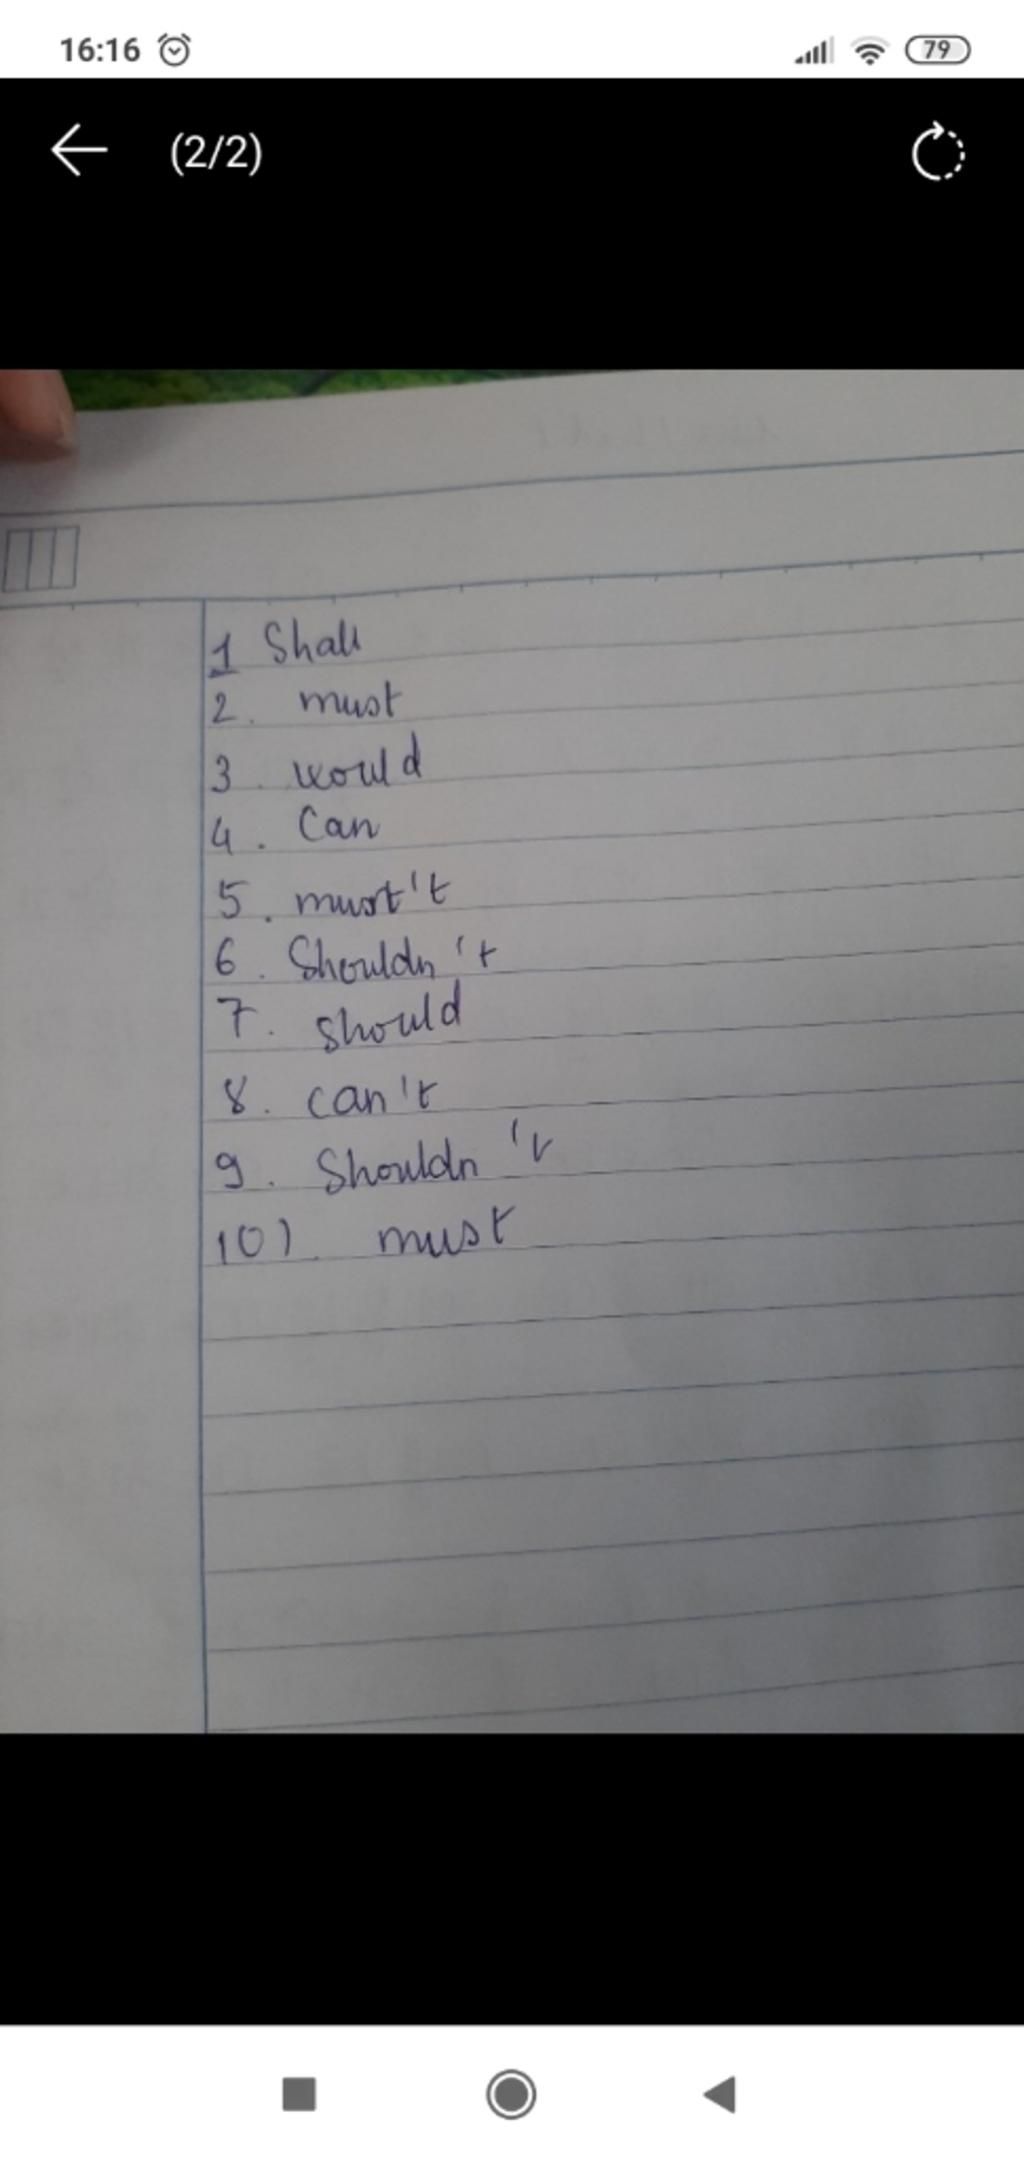 16:16
79
(2/2)
1 Shall
2. must
3. would
4. Can
5. must't
6. Shouldn't
7. should
8. can't
9. Shouldn't
10). must